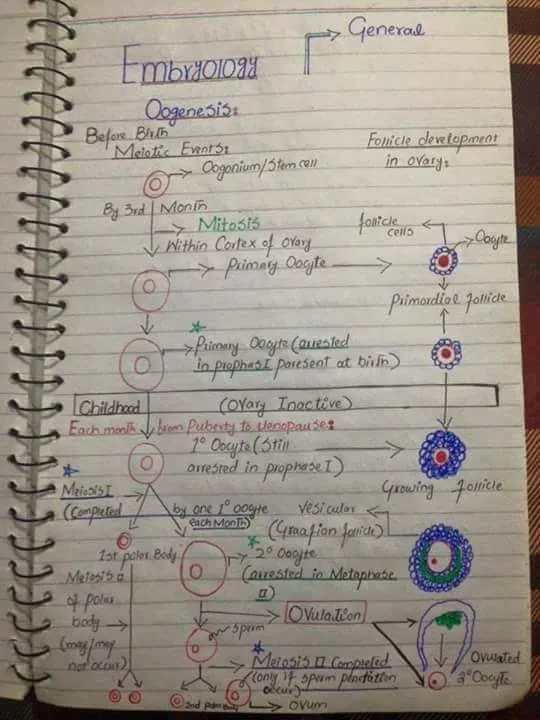 General
Embryology
Oogenesis:
Before Birth
Meiotic Events:
Follicle development
in ovary:
Oogonium/Stem cell
By 3rd Month
Mitosis
Within Cortex of ovary
follicle
cells
Oocyte
Primary Oocyte
Primordial follicle
Primary Oocyte (arrested
in prophase I poresent at birth)
Childhood
(Ovary Inactive)
Each month from Puberty to Menopause:
1° Oocyte (Still
arrested in prophase I)
Growing follicle
Meiosis I
(Completed by one 1° oocyte
each Month)
Vesicular
(Graafian follicle)
1st polar Body
2° Oocyte
(arrested in Metaphase
II)
Meiosis II
of polar
body
(may/may
not occur)
Ovulation
sperm
Meiosis II Completed
(only if sperm penetration
occur)
Ovulated
2° Oocyte
2nd polar Body
Ovum